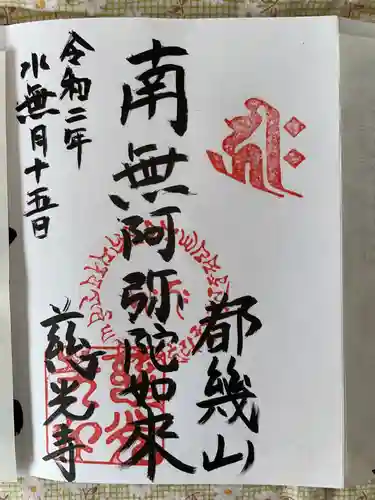 都幾山
南無阿弥陀如来
慈光寺
令和二年
水無月十五日